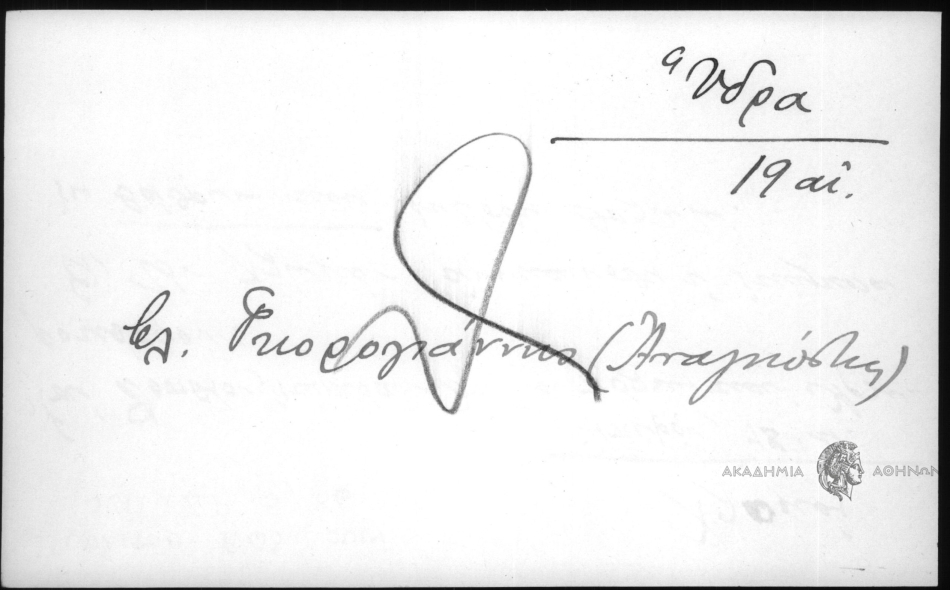 Ὕδρα
19 αἰ.
βλ. Γκιορογιάννης (Ἀναγνώστης)
ΑΚΑΔΗΜΙΑ ΑΘΗΝΩΝ